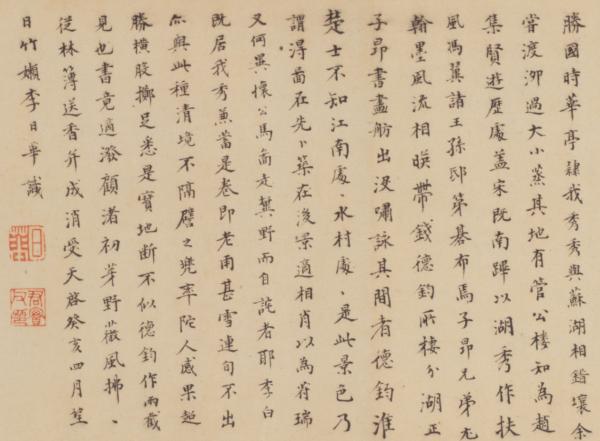 勝國時華亭隸我秀秀與蘇湖相錯壤余
嘗渡泖過大小蒸其地有管公樓知為趙
集賢遊歷處蓋宋既南蹕以湖秀作扶
風馮翼諸王孫邸第碁布焉子昂兄弟尤
翰墨風流相暎帶錢德鈞所棲分湖正
子昂書畫舫出没嘯詠其間者德鈞淮
楚士不知江南處〻水村處〻是此景色乃
謂淂啚在先卜築在後景適相肖以為符瑞
又何異懷公馬啚走冀野而自詫者耶李白
既居我秀兼蓄是卷即老甫甚雪連旬不出
亦與此種清境不隔譬之兜率陀人感果超
勝橫肱擲足悉是寳地斷不似德鈞作兩截
見也書竟適潑顧渚初芽野薇風拂〻
從林薄送香并成消受天啓癸亥四月望
日竹嬾李日華識
日華